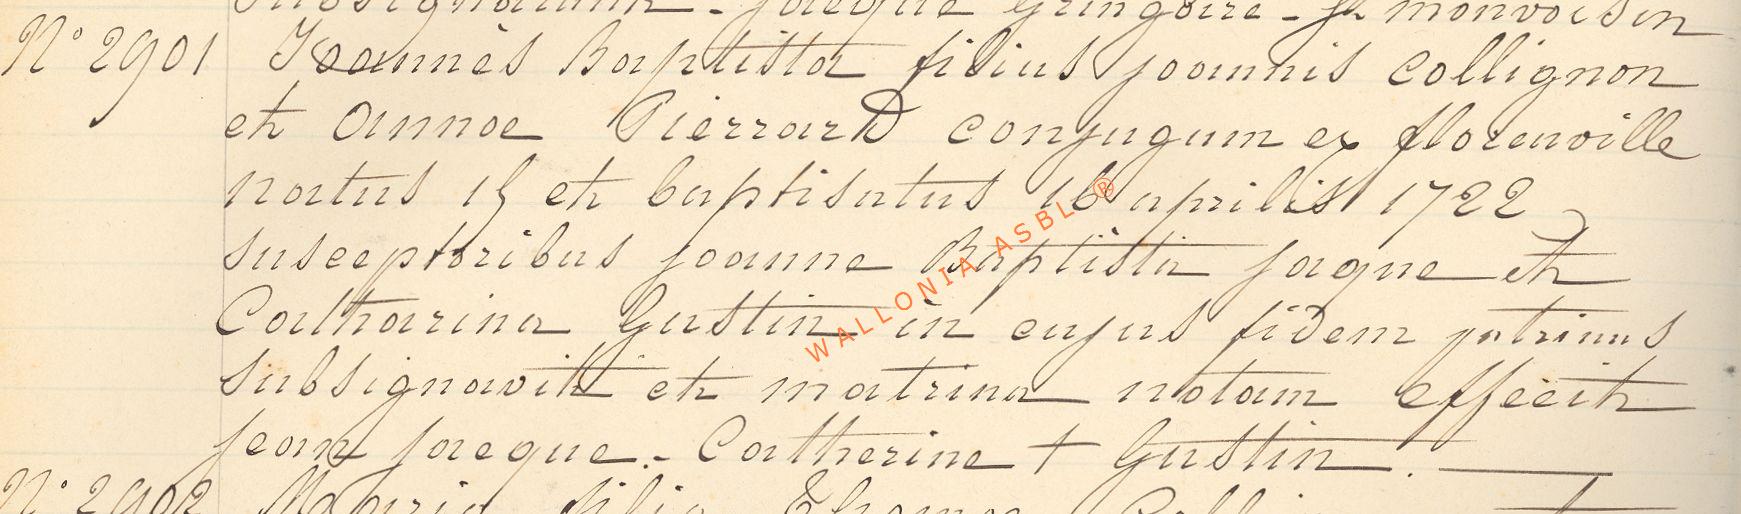 subsignarunt - jacque Gringoire - J. monvoisin
N° 2901 Joannès Baptista filius joannis collignon
et annae Pierrard conjugum ex florenville
natus 15 et baptisatus 16 aprilis 1722
susceptoribus joanne Baptista jaque et
Catharina Gustin in cujus fidem patrinus
subsignavit et matrina notam effecit
jean jacque. - Catherine + Gustin.
N° 2902 Maria filia Thomae
WALLONIA ASBL ®